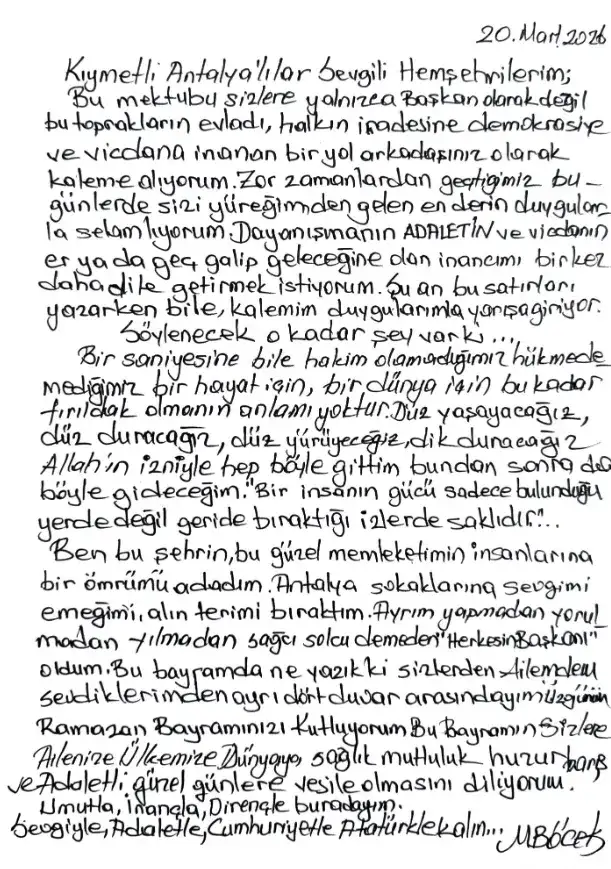 20.Mart.2026
Kıymetli Antalya'lılar Sevgili Hemşehrilerim;
Bu mektubu sizlere yalnızca Başkan olarak değil
bu toprakların evladı, halkın iradesine demokrasiye
ve vicdana inanan bir yol arkadaşınız olarak
kaleme alıyorum. Zor zamanlardan geçtiğimiz bu-
günlerde sizi yüreğimden gelen en derin duygular
la selamlıyorum. Dayanışmanın ADALETİN ve vicdanın
er ya da geç galip geleceğine olan inancımı bir kez
daha dile getirmek istiyorum. Şu an bu satırları
yazarken bile, kalemim duygularımla yarışa giriyor.
Söylenecek o kadar şey var ki...,
Bir saniyesine bile hakim olamadığımız hükmede
mediğimiz bir hayat için, bir dünya için bu kadar
fırıldak olmanın anlamı yoktur. Düz yaşayacağız,
düz duracağız, düz yürüyeceğiz, dik duracağız
Allah'ın izniyle hep böyle gittim bundan sonra da
böyle gideceğim. "Bir insanın gücü sadece bulunduğu
yerde değil geride bıraktığı izlerde saklıdır"..
Ben bu şehrin, bu güzel memleketimin insanlarına
bir ömrümü adadım. Antalya sokaklarına sevgimi
emeğimi, alın terimi bıraktım. Ayrım yapmadan yorul
madan yılmadan sağcı solcu demeden "Herkesin Başkanı"
oldum. Bu bayramda ne yazık ki sizlerden Ailemden
sevdiklerimden ayrı dört duvar arasındayım Üzgünüm
Ramazan Bayramınızı Kutluyorum Bu Bayramın Sizlere
Ailenize Ülkemize Dünyaya, sağlık mutluluk huzur barış
ve Adaletli, güzel günlere vesile olmasını diliyorum.
Umutla, İnançla, Dirençle buradayım.
Sevgiyle, Adaletle, Cumhuriyetle Atatürkle kalın... MBÖCEK